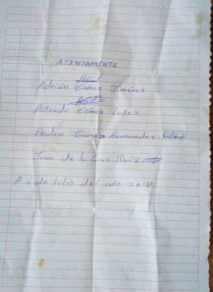 ATENTAMENTE
Adrián Gómez Jiménez
Alfredo Gómez López
Pedro Gómez Hernandez
Juan de la Cruz Ruiz
A 6 de Julio del año